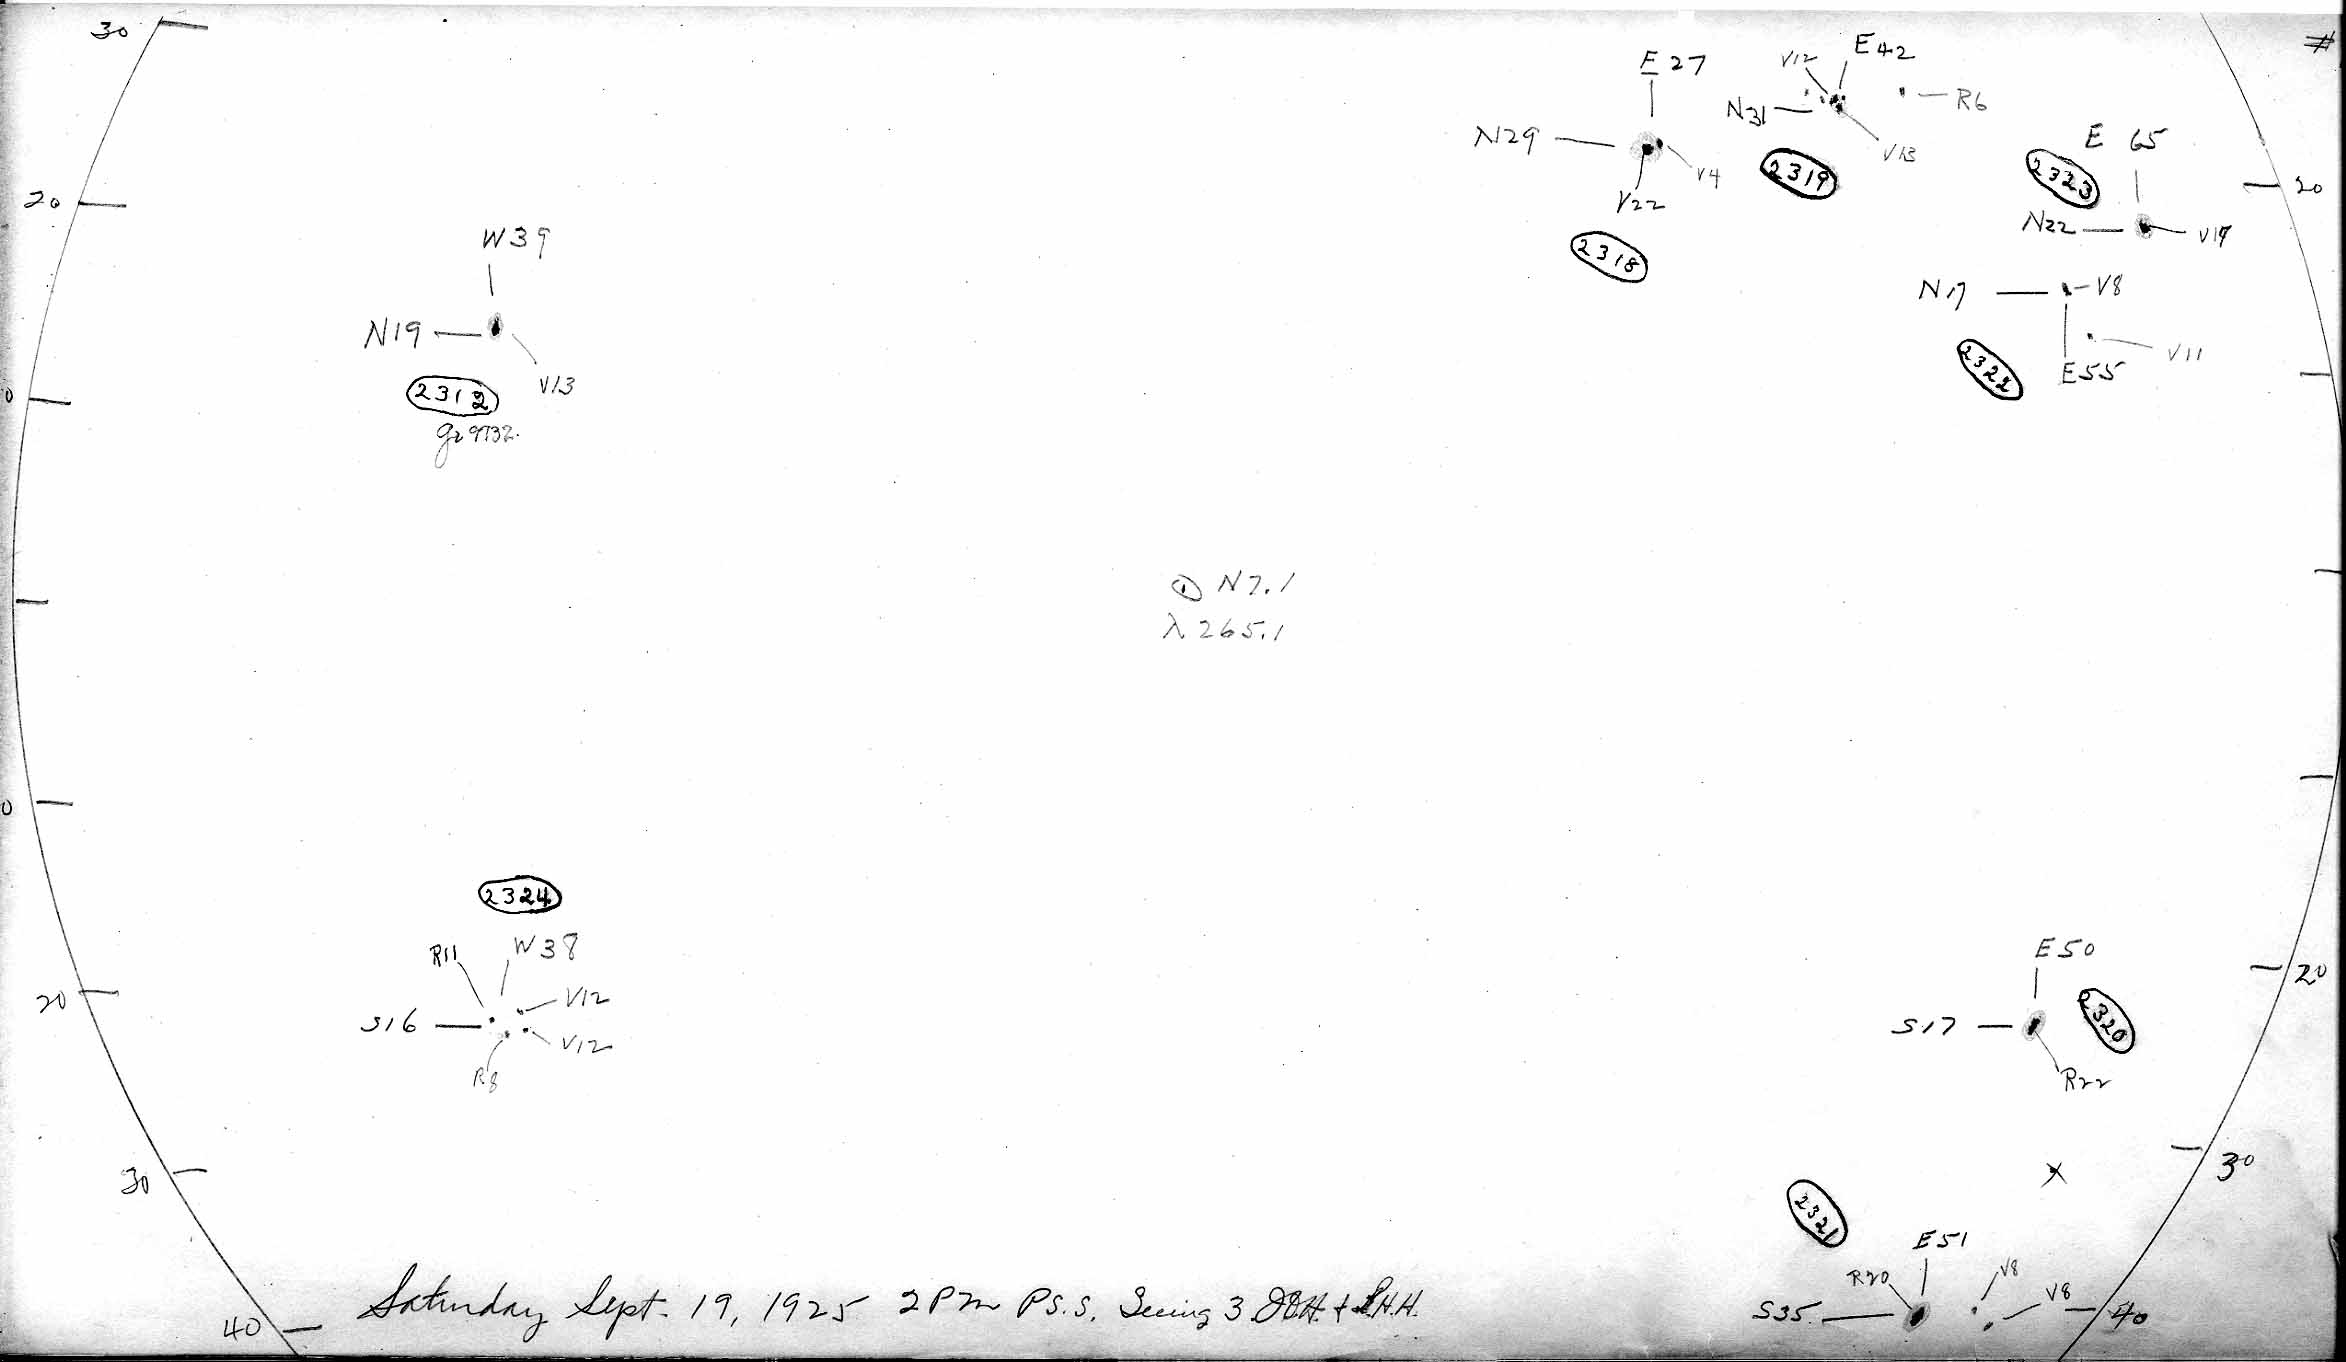 30
E 27
V12
E 42
#
N31
R6
N29
V13
V4
2319
E 65
2323
20
20
V22
N22
V17
2318
W 39
N19
N17
V8
V13
2322
V11
E55
0
2312
N7.1
λ 265.1
0
2324
R11
W 38
V12
S16
V12
R8
20
E 50
20
S17
2320
R22
30
30
2321
E 51
R20
V8
V8
S35
40
Saturday Sept. 19, 1925 2 Pm P S.S. Seeing 3
40